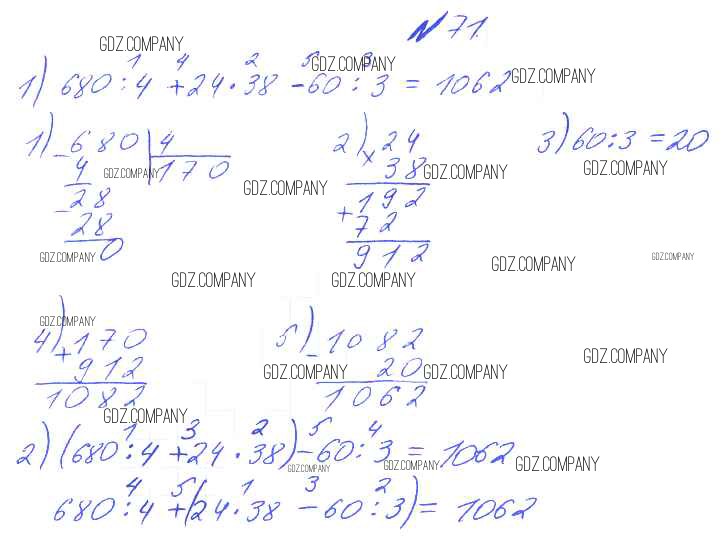 № 71.
GDZ.COMPANY
1 4 2 5 3
1) 680 : 4 + 24 · 38 - 60 : 3 = 1062
GDZ.COMPANY GDZ.COMPANY
1) - 680 | 4 2) × 24 3) 60 : 3 = 20
4 170 38
GDZ.COMPANY GDZ.COMPANY GDZ.COMPANY GDZ.COMPANY
- 28 + 192
28 72
0 912
GDZ.COMPANY GDZ.COMPANY GDZ.COMPANY
GDZ.COMPANY GDZ.COMPANY
GDZ.COMPANY
4) + 170 5) - 1082
912 20
GDZ.COMPANY
GDZ.COMPANY GDZ.COMPANY
1082 1062
GDZ.COMPANY
1 3 2 5 4
2) (680 : 4 + 24 · 38) - 60 : 3 = 1062
GDZ.COMPANY GDZ.COMPANY GDZ.COMPANY
4 5 1 3 2
680 : 4 + (24 · 38 - 60 : 3) = 1062